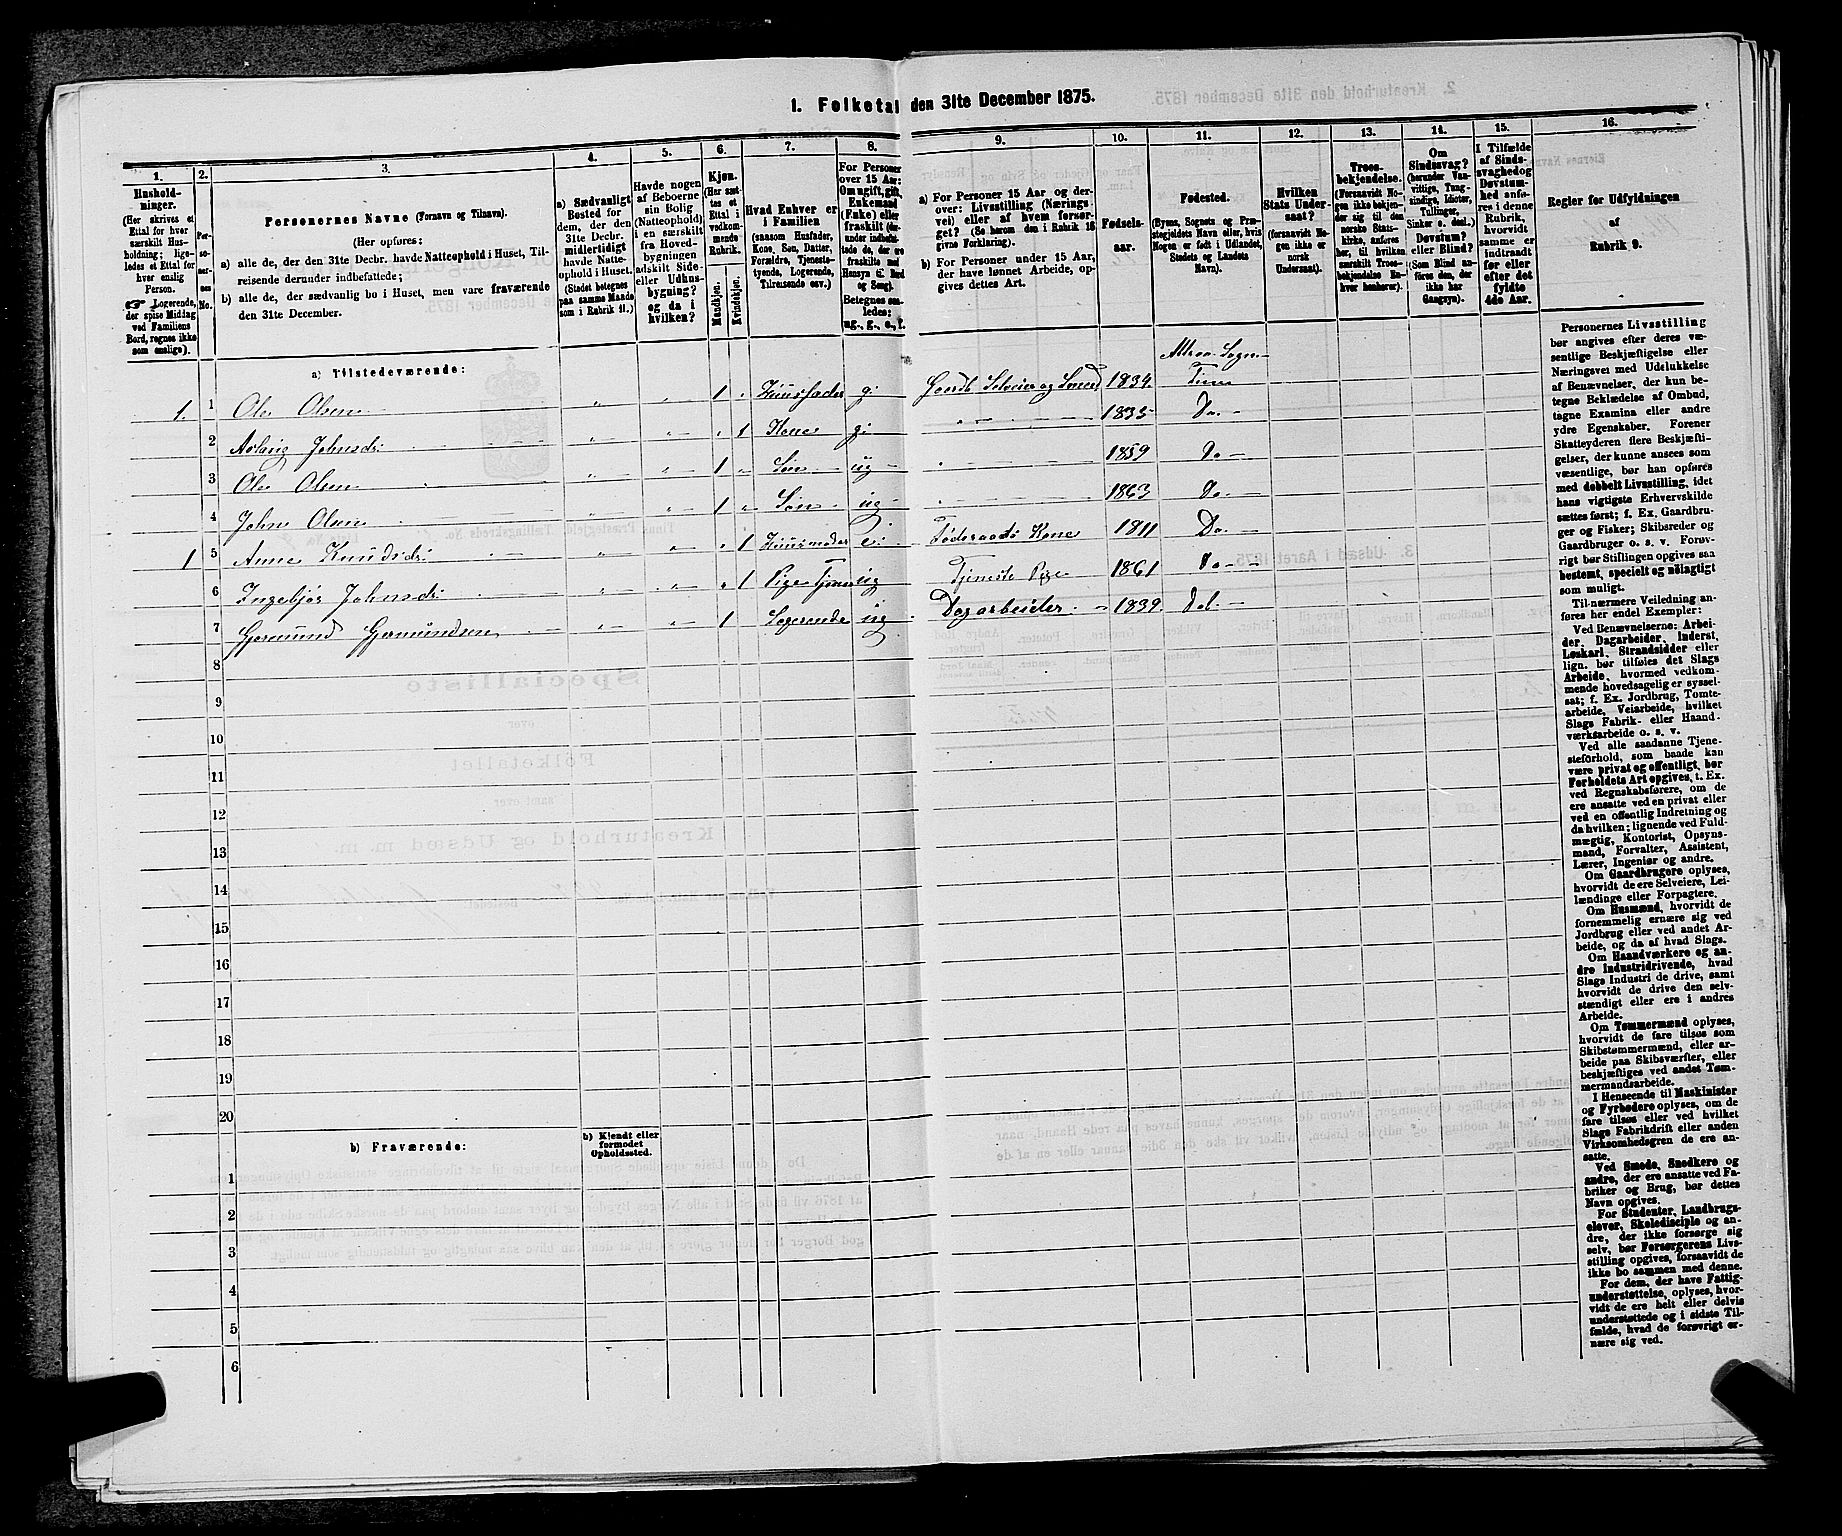 1. Folketal den 31te December 1875.
1.
Hushold-
ninger.
(Her skrives et
Ettal for hver
særskilt Hus-
holdning; lige-
ledes et Ettal for
hver enslig
Person.
Logerende,
der spise Middag
ved Familiens
Bord, regnes ikke
som enslige).
2.
Per-
so-
ner-
nes
No.
3.
Personernes Navne (Fornavn og Tilnavn).
(Her opføres:
a) alle de, der den 31te Decbr. havde Natteophold i Huset, Til-
reisende derunder indbefattede;
b) alle de, der sædvanlig bo i Huset, men vare fraværende
den 31te December.
4.
a) Sædvanligt
Bosted for
dem, der den
31te Decbr.
midlertidigt
havde Natte-
ophold i Huset.
(Stedet betegnes
paa samme Maade
som i Rubrik 11.)
5.
Havde nogen
af Beboerne
sin Bolig
(Natteophold)
i en særskilt
fra Hoved-
bygningen
adskilt Side-
eller Udhus-
bygning?
og da i
hvilken?
6.
Kjøn.
(Her sæt-
tes et
Ettal i
vedkom-
mende
Rubrik.
Mandkjøn.
Kvindekjøn.
7.
Hvad Enhver er
i Familien
(saasom Husfader,
Kone, Søn, Datter,
Forældre, Tjeneste-
tyende, Logerende,
Tilreisende osv.)
8.
For Personer
over 15 Aar:
Om ugift, gift,
Enkemand
(Enke) eller
fraskilt (der-
under indbefat-
tede de, der ere
fraskilte med
Hensyn til Bord
og Seng).
Betegnes saa-
ledes:
ug., g., e., f.
9.
a) For Personer 15 Aar og der-
over: Livsstilling (Nærings-
vei) eller af hvem forsør-
get? (Se herom den i Rubrik 16
givne Forklaring).
b) For Personer under 15 Aar,
der have lønnet Arbeide, op-
gives dettes Art.
10.
Fødsels-
aar.
11.
Fødested.
(Byens, Sognets og Præ-
stegjeldets Navn eller, hvis
Nogen er født i Udlandet,
Stedets og Landets
Navn).
12.
Hvilken
Stats Under-
saat?
(forsaavidt No-
gen ikke er
norsk
Undersaat).
13.
Troes-
bekjendelse.
(Forsaavidt No-
gen ikke bekjen-
der sig til den
norske Stats-
kirke, anføres
her, til hvilken
særskilt Troes-
bekjendelse En-
hver henhører).
14.
Om
Sindssvag?
(herunder Van-
vittige, Tung-
sindige, Idioter,
Tullinger,
Sinker o. desl.)
Døvstum?
eller Blind?
(Som Blind an-
føres den, der
ikke har
Gangsyn).
15.
I Tilfælde
af Sinds-
svaghed og
Døvstum-
hed anfø-
res i denne
Rubrik,
hvorvidt
samme er
indtraadt
før eller
efter det
fyldte
4de Aar.
16.
Regler for Udfyldningen
af
Rubrik 9.
a) Tilstedeværende:
Attraa Sogn
1. 1 Ole Olsen " " 1 " Huusfader g. Gaardb. Selveier og Smed 1834 Tinn
2 Aslaug Johnsdr. " " " 1 Kone g. " 1835 Do.
3 Ole Olsen " " 1 " Søn ug " 1859 Do
4 John Olsen " " 1 " Søn ug " 1863 Do.
1 5 Anne Knudsdr. " " " 1 Huusmoder e. Føderaads Kone 1811 Do.
6 Ingebjør Johnsdr. " " " 1 Pige Tjener ug Tjeneste Pige 1861 Do
7 Gjermund Gjermundsen " " 1 Logerende ug Dagarbeider 1839 Do.
8
9
10
11
12
13
14
15
16
17
18
19
20
b) Fraværende:
b) Kjendt eller
formodet
Opholdssted.
1
2
3
4
5
6
Personernes Livsstilling
bør angives efter deres væ-
sentlige Beskjæftigelse eller
Næringsvei med Udelukkelse
af Benævnelser, der kun be-
tegne Beklædelse af Ombud,
tagne Examina eller andre
ydre Egenskaber. Forener
Skatteyderen flere Beskjæfti-
gelser, der kunne ansees som
væsentlige, bør han opføres
med dobbelt Livsstilling, idet
hans vigtigste Erhvervskilde
sættes først; f. Ex. Gaardbru-
ger og Fisker; Skibsreder og
Gaardbruger o. s. v. Forøv-
rigt bør Stillingen opgives saa
bestemt, specielt og nøiagtigt
som muligt.
Til nærmere Veiledning an-
føres her endel Exempler:
Ved Benævnelserne: Arbei-
der, Dagarbeider, Inderst,
Løskarl, Strandsidder eller
lign. bør tilføies det Slags
Arbeide, hvormed vedkom-
mende hovedsagelig er syssel-
sat; f. Ex. Jordbrug, Tomte-
arbeide, Veiarbeide, hvilket
Slags Fabrik- eller Haand-
værksarbeide o. s. v.
Ved alle saadanne Tjene-
steforhold, som baade kan
være privat og offentligt, bør
Forholdets Art opgives, t. Ex.
ved Regnskabsførere, om de
ere ansatte ved en privat eller
ved en offentlig Indretning og
da hvilken; lignende ved Fuld-
mægtig, Kontorist, Opsyns-
mand, Forvalter, Assistent,
Lærer, Ingeniør og andre.
Om Gaardbrugere oplyses,
hvorvidt de ere Selveiere, Lei-
lændinge eller Forpagtere.
Om Husmænd, hvorvidt de
fornemmelig ernære sig ved
Jordbrug eller ved andet Ar-
beide, og da af hvad Slags.
Om Haandværkere og an-
dre Industridrivende, hvad
Slags Industri de drive, samt
hvorvidt de drive den selv-
stændigt eller ere i andres
Arbeide.
Om Tømmermænd oplyses,
hvorvidt de fare tilsøs som
Skibstømmermænd, eller ar-
beide paa Skibsværfter, eller
beskjæftiges ved andet Tøm-
mermandsarbeide.
I Henseende til Maskinister
og Fyrbødere oplyses, om de
fare tilsøs eller ved hvilket
Slags Fabrikdrift eller anden
Virksomhedsgren de ere an-
satte.
Ved Smede, Snedkere og
andre, der ere ansatte ved Fa-
briker og Brug, bør dettes
Navn opgives.
For Studenter, Landbrugs-
elever, Skoledisciple og an-
dre, der ikke forsørge sig
selv, bør Forsørgerens Livs-
stilling opgives, forsaavidt de
ikke bo sammen med denne.
For dem, der have Fattig-
understøttelse, oplyses, hvor-
vidt de ere helt eller delvis
understøttede og i sidste Til-
fælde, hvad de forøvrigt er-
nære sig ved.